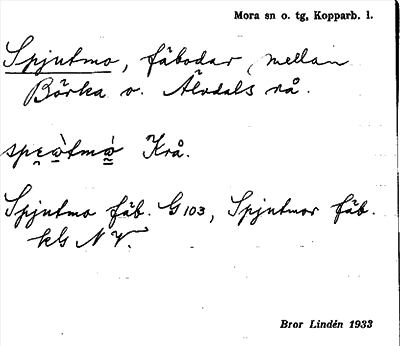 Mora sn o. tg, Kopparb. l.
Spjutmo, fäbodar, mellan
Börka o. Älvdals rå.
Krå.
Spjutmo fäb. G 103, Spjutmor fäb.
kG N V.
Bror Lindén 1933